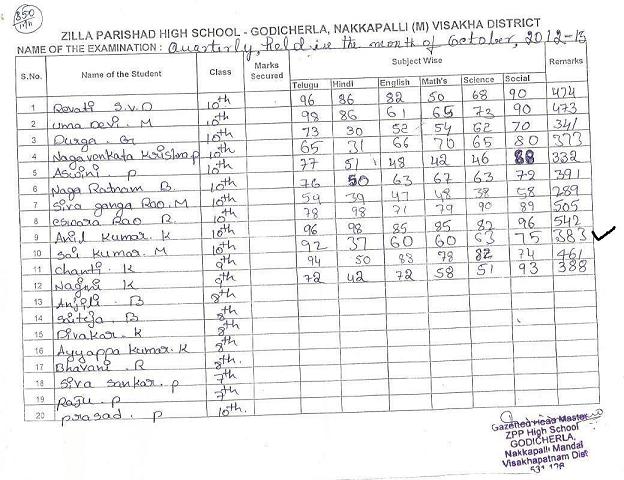 850
ZILLA PARISHAD HIGH SCHOOL - GODICHERLA, NAKKAPALLI (M) VISAKHA DISTRICT
NAME OF THE EXAMINATION : Quarterly, held in the month of October, 2012-13
S.No. Name of the Student Class Marks Secured Subject Wise Remarks
Telugu Hindi English Math's Science Social
1 Revati S.V.D 10th 96 86 82 50 68 90 474
2 Uma Devi. M 10th 98 86 61 65 73 90 473
3 Durga. G 10th 73 30 52 54 62 70 341
4 Nagavenkata Krishna p 10th 65 31 66 70 65 80 373
5 Aswini P 10th 77 51 48 42 46 68 332
6 Naga Ratnam B. 10th 76 50 63 67 63 72 391
7 Siva ganga Rao. M 10th 59 39 47 48 38 58 289
8 eswara Rao R. 10th 78 98 71 79 90 89 505
9 Anil Kumar. K 10th 96 98 85 85 82 96 542
10 Sai Kumar. M 10th 92 37 60 60 63 75 383
11 Chanti. K 9th 94 50 83 78 82 74 461
12 Nagini K 9th 72 42 72 58 51 93 388
13 Anjili. B 8th
14 Saiteja. B 8th
15 Divakar. K 8th
16 Ayyappa Kumar. K 8th
17 Bhavani. R 8th.
18 Siva Sankar. P 7th
19 Raju. P 7th
20 Prasad. P 10th.
Gazetted Head Master
ZPP High School
GODICHERLA,
Nakkapalli Mandal
Visakhapatnam Dist
531 126